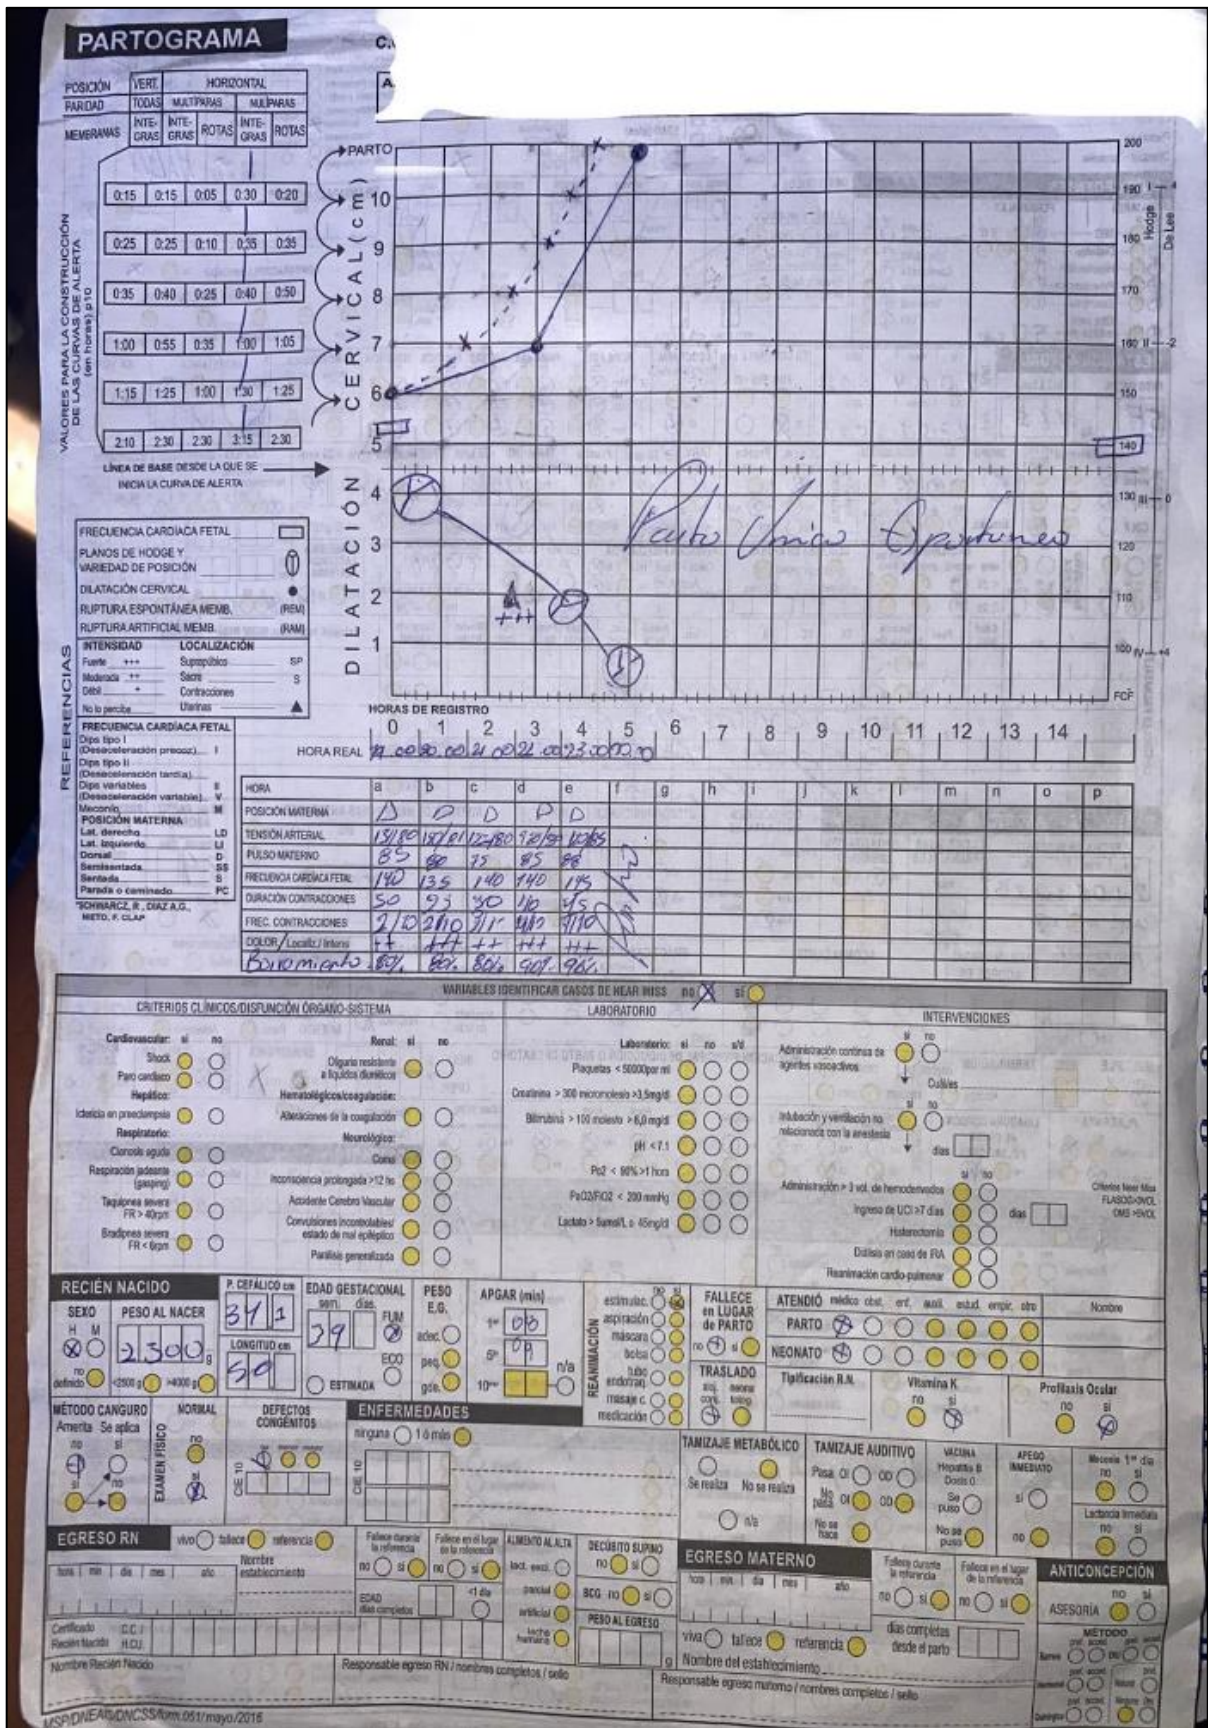 PARTOGRAMA
POSICIÓN VERT. HORIZONTAL
PARIDAD TODAS MULTÍPARAS NULÍPARAS
MEMBRANAS ÍNTE-GRAS ÍNTE-GRAS ROTAS ÍNTE-GRAS ROTAS
0:15 0:15 0:05 0:30 0:20
0:25 0:25 0:10 0:35 0:35
0:35 0:40 0:25 0:40 0:50
1:00 0:55 0:35 1:00 1:05
1:15 1:25 1:00 1:30 1:25
2:10 2:30 2:30 3:15 2:30
VALORES PARA LA CONSTRUCCIÓN
DE LAS CURVAS DE ALERTA
(en horas) p10
LÍNEA DE BASE DESDE LA QUE SE
INICIA LA CURVA DE ALERTA
DILATACIÓN CERVICAL (cm)
PARTO
10
9
8
7
6
5
4
3
2
1
200
190 I -4
180
170
160 II -2
150
140
130 III 0
120
110
100 IV +4
FCF
Hodge
De Lee
Parto Unico
++
REFERENCIAS
FRECUENCIA CARDÍACA FETAL
PLANOS DE HODGE Y
VARIEDAD DE POSICIÓN
DILATACIÓN CERVICAL
RUPTURA ESPONTÁNEA MEMB. (REM)
RUPTURA ARTIFICIAL MEMB. (RAM)
INTENSIDAD LOCALIZACIÓN
Fuerte +++ Suprapúbico SP
Moderada ++ Sacra S
Débil + Contracciones
No lo percibe Uterinas
FRECUENCIA CARDÍACA FETAL
Dips tipo I
(Desaceleración precoz) I
Dips tipo II
(Desaceleración tardía)
Dips variables II
(Desaceleración variable) V
Meconio M
POSICIÓN MATERNA
Lat. derecho LD
Lat. Izquierdo LI
Dorsal D
Semisentada SS
Sentada S
Parada o caminado PC
*SCHWARCZ, R , DIAZ A.G.,
NIETO, F. CLAP
HORAS DE REGISTRO
0 1 2 3 4 5 6 7 8 9 10 11 12 13 14
HORA REAL 20.00 21.00 22.00 23.00
HORA a b c d e f g h i j k l m n o p
POSICIÓN MATERNA D D D D D
TENSIÓN ARTERIAL
PULSO MATERNO 85 80 75 85 88
FRECUENCIA CARDÍACA FETAL 140 135 140 140 145
DURACIÓN CONTRACCIONES 50
FREC. CONTRACCIONES 2/10 2/10
DOLOR / Localiz./ Intens ++ +++ ++ +++ +++
Borramiento 80% 80% 80% 90% 90%
VARIABLES IDENTIFICAR CASOS DE NEAR MISS no X si
CRITERIOS CLÍNICOS/DISFUNCIÓN ÓRGANO-SISTEMA
Cardiovascular: si no
Shock
Paro cardiaco
Hepático:
Ictericia en preeclampsia
Respiratorio:
Cianosis aguda
Respiración jadeante
(gasping)
Taquipnea severa
FR > 40rpm
Bradipnea severa
FR < 6rpm
Renal: si no
Oliguria resistente
a líquidos diuréticos
Hematológicos/coagulación:
Alteraciones de la coagulación
Neurológico:
Coma
Inconsciencia prolongada >12 hs
Accidente Cerebro Vascular
Convulsiones incontrolables/
estado de mal epiléptico
Parálisis generalizada
LABORATORIO
Laboratorio: si no s/d
Plaquetas < 50000por ml
Creatinina > 300 micromolesto >3,5mg/dl
Bilirrubina > 100 molesto > 6,0 mg/dl
pH <7.1
Po2 < 90% >1 hora
PaO2/FiO2 < 200 mmHg
Lactato > 5umol/L o 45mg/dl
INTERVENCIONES
si no
Administración continua de
agentes vasoactivos
Cuáles
si no
Intubación y ventilación no
relacionada con la anestesia
días
si no
Administración > 3 vol. de hemoderivados
Ingreso de UCI >7 días días
Histerectomía
Diálisis en caso de IRA
Reanimación cardio-pulmonar
Criterios Near Miss
RECIÉN NACIDO
SEXO
H M
X
no definido
PESO AL NACER
2300 g
<2500 g >4000 g
P. CEFÁLICO cm
34 1
LONGITUD cm
50
EDAD GESTACIONAL
sem. días.
39
FUM
ECO
ESTIMADA
PESO E.G.
adec.
peq.
gde.
APGAR (min)
1er 08
5o 09
10mo n/a
REANIMACIÓN
no si
estimulac.
aspiración
máscara
bolsa
tubo endotraq.
masaje c.
medicación
FALLECE en LUGAR de PARTO
no si
TRASLADO
aloj. conj. neona tolog.
ATENDIÓ médico obst. enf. auxil. estud. empir. otro Nombre
PARTO
NEONATO
Tipificación R.N.
Vitamina K
no si
Profilaxis Ocular
no si
MÉTODO CANGURO
Amerita Se aplica
no si
si no
EXAMEN FÍSICO
NORMAL
no
si
DEFECTOS CONGÉNITOS
CIE 10
ENFERMEDADES
ninguna 1 ó más
CIE 10
TAMIZAJE METABÓLICO
Se realiza No se realiza
n/a
TAMIZAJE AUDITIVO
Pasa OI OD
No pasa OI OD
No se hace
VACUNA
Hepatitis B
Dosis 0
Se puso
No se puso
APEGO INMEDIATO
si
no
Meconio 1er día
no si
Lactancia Inmediata
no si
EGRESO RN vivo fallece referencia
hora min día mes año
Nombre establecimiento
Fallece durante la referencia
no si
Fallece en el lugar de la referencia
no si
EDAD días completos <1 día
ALIMENTO AL ALTA
lact. excl.
parcial
artificial
leche humana
DECÚBITO SUPINO
no si
BCG no si
PESO AL EGRESO
g
EGRESO MATERNO
hora min día mes año
viva fallece referencia
Nombre del establecimiento
Fallece durante la referencia
no si
Fallece en el lugar de la referencia
no si
días completas
desde el parto
ANTICONCEPCIÓN
no si
ASESORÍA
MÉTODO
Certificado C.C. /
Recién Nacido H.C.U.
Nombre Recién Nacido
Responsable egreso RN / nombres completos / sello
Responsable egreso materno / nombres completos / sello
MSP/DNEAIS/DNCSS/form.051/mayo/2016